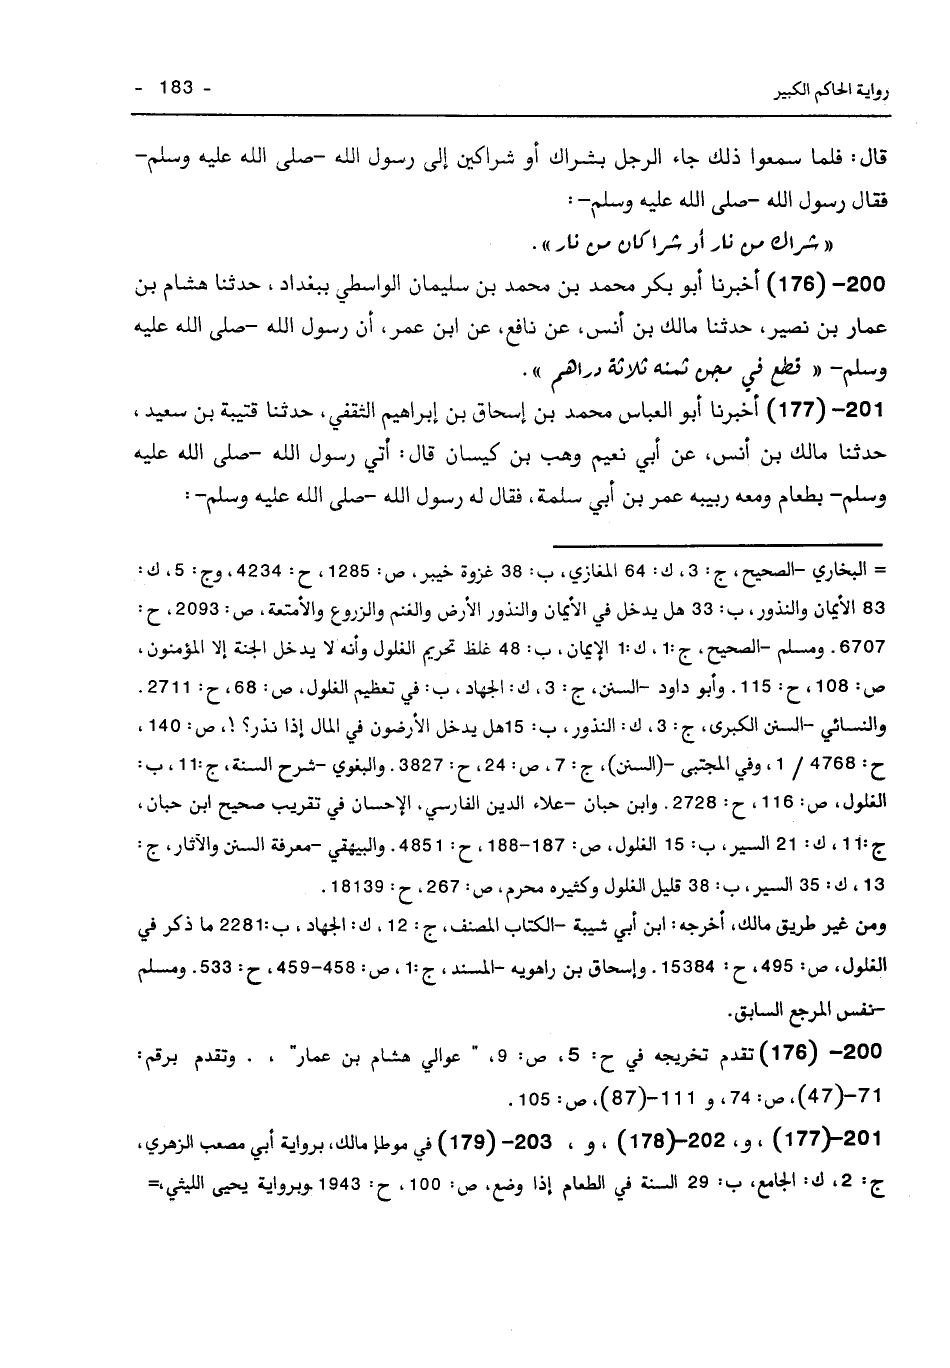 رواية الحاكم الكبير - 183 -
قال: فلما سمعوا ذلك جاء الرجل بشراك أو شراكين إلى رسول الله -صلى الله عليه وسلم-
فقال رسول الله -صلى الله عليه وسلم-:
« شراك من نار أو شراكان من نار ».
200- (176) أخبرنا أبو بكر محمد بن محمد بن سليمان الواسطي ببغداد ، حدثنا هشام بن
عمار بن نصير، حدثنا مالك بن أنس، عن نافع، عن ابن عمر، أن رسول الله -صلى الله عليه
وسلم- « قطع في مجن ثمنه ثلاثة دراهم ».
201- (177) أخبرنا أبو العباس محمد بن إسحاق بن إبراهيم الثقفي، حدثنا قتيبة بن سعيد ،
حدثنا مالك بن أنس، عن أبي نعيم وهب بن كيسان قال: أتي رسول الله -صلى الله عليه
وسلم- بطعام ومعه ربيبه عمر بن أبي سلمة، فقال له رسول الله -صلى الله عليه وسلم-:
= البخاري -الصحيح، ج: 3، ك: 64 المغازي، ب: 38 غزوة خيبر، ص: 1285 ، ح: 4234، وج: 5، ك:
83 الأيمان والنذور، ب: 33 هل يدخل في الأيمان والنذور الأرض والغنم والزروع والأمتعة، ص: 2093، ح:
6707. ومسلم -الصحيح، ج:1، ك:1 الإيمان، ب: 48 غلظ تحريم الغلول وأنه لا يدخل الجنة إلا المؤمنون،
ص: 108، ح: 115. وأبو داود -السنن، ج: 3، ك: الجهاد ، ب: في تعظيم الغلول، ص: 68، ح: 2711.
والنسائي -السنن الكبرى، ج: 3، ك: النذور، ب: 15هل يدخل الأرضون في المال إذا نذر؟ !، ص: 140 ،
ح: 4768 / 1، وفي المجتبى -(السنن)، ج: 7، ص: 24، ح: 3827. والبغوي -شرح السنة، ج:11، ب:
الغلول، ص: 116، ح: 2728. وابن حبان -علاء الدين الفارسي، الإحسان في تقريب صحيح ابن حبان،
ج:11، ك: 21 السير، ب: 15 الغلول، ص: 187-188، ح: 4851. والبيهقي -معرفة السنن والآثار، ج:
13، ك: 35 السير، ب: 38 قليل الغلول وكثيره محرم، ص: 267، ح: 18139.
ومن غير طريق مالك، أخرجه: ابن أبي شيبة -الكتاب المصنف، ج: 12، ك: الجهاد ، ب:2281 ما ذكر في
الغلول، ص: 495، ح: 15384. وإسحاق بن راهويه -المسند ، ج:1، ص: 458-459، ح: 533. ومسلم
-نفس المرجع السابق.
200- (176) تقدم تخريجه في ح: 5، ص: 9، " عوالي هشام بن عمار" ، . وتقدم برقم:
71-(47)، ص: 74، و 111-(87)، ص: 105.
201-(177) ، و، 202-(178) ، و ، 203- (179) في موطإ مالك، برواية أبي مصعب الزهري،
ج: 2، ك: الجامع، ب: 29 السنة في الطعام إذا وضع، ص: 100، ح: 1943.وبرواية يحيى الليثي،=